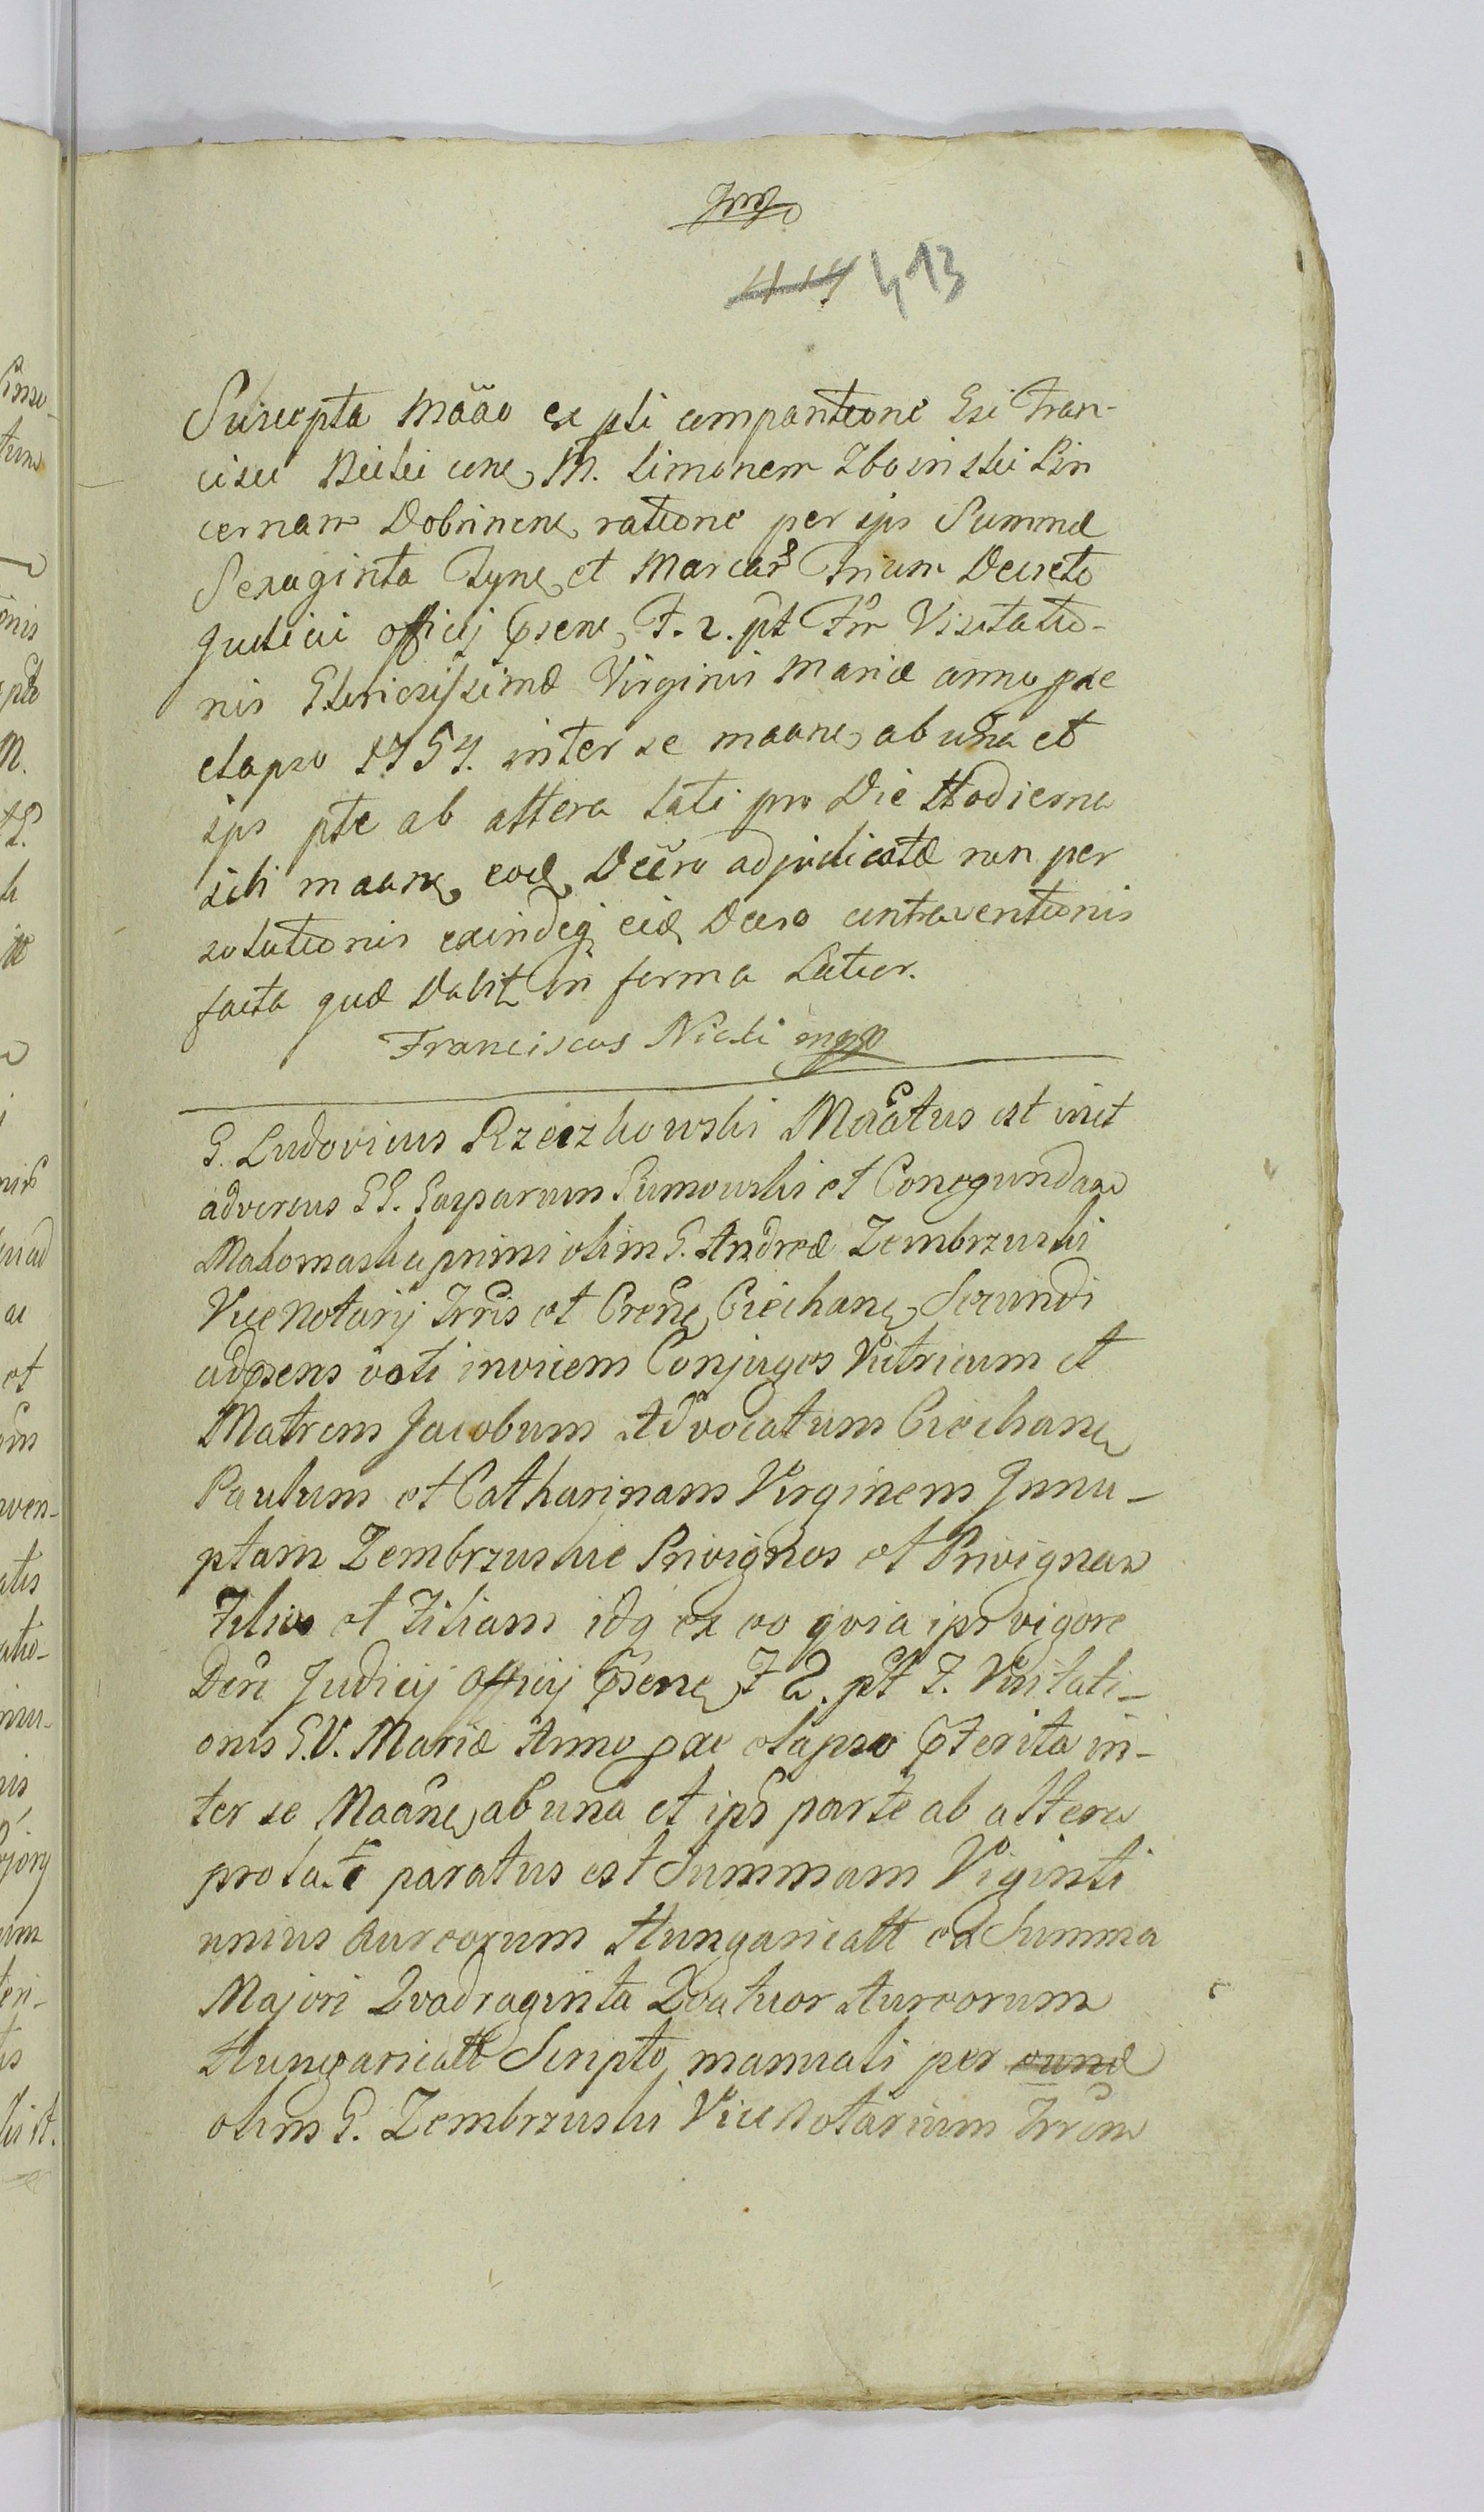 413
Suscepta Mãao ex pti compantione Gsi Fran-
cisci Nicki cone M. Simonem Zboinski Pin
cernam Dobrinene, ratione per ips Summæ
Sexaginta Tyne, et Marcar Trium Decreto
Judicii officij Gsene, F. 2. pt Fm Visitatio-
nis Gloriosissimæ Virginis Mariæ anno pxe
elapso 1754. inter se maane, ab una et
ips pte ab altera lati pro Die Hodierna
sibi maane, eod, Dccro adjudicatæ non per
solutionis exindeq eid, Dcro contraventionis
facta quæ Dabit in forma Latior.
Franciscus Nicki mpp
G. Ludovicus Rzeczkowski Meratus est inct
adversus GG. Gasparum Rumowski et Conegundam
Makomaska primi olim G. Andreæ Zembrzuski
Vicenotarij Trris et Crene, Ciechane, Secundi
adpsens voti invicem Conjuges Vitricum et
Matrem Jacobum Advocatum Ciechane,
Paulum et Catharinam Virginem Innu-
ptam Zembrzuskie Privignos et Privignam
Filios et Filiam idq ex eo qvia ips vigore
Dcri Judicij Officij Gsene, F 2. pt F. Visitati-
onis G.V. Mariæ Anno pxe elapso Gterita in-
ter se Maane, ab una et ips parte ab altera
prolati paratus est Summam Viginti
unius Aureorum Hungaricall ex Summa
Majori Qvadraginta Qvatuor Aureorum
Hungaricall Scripto manuali per eund
olim G. Zembrzuski Vicenotarium Trrem